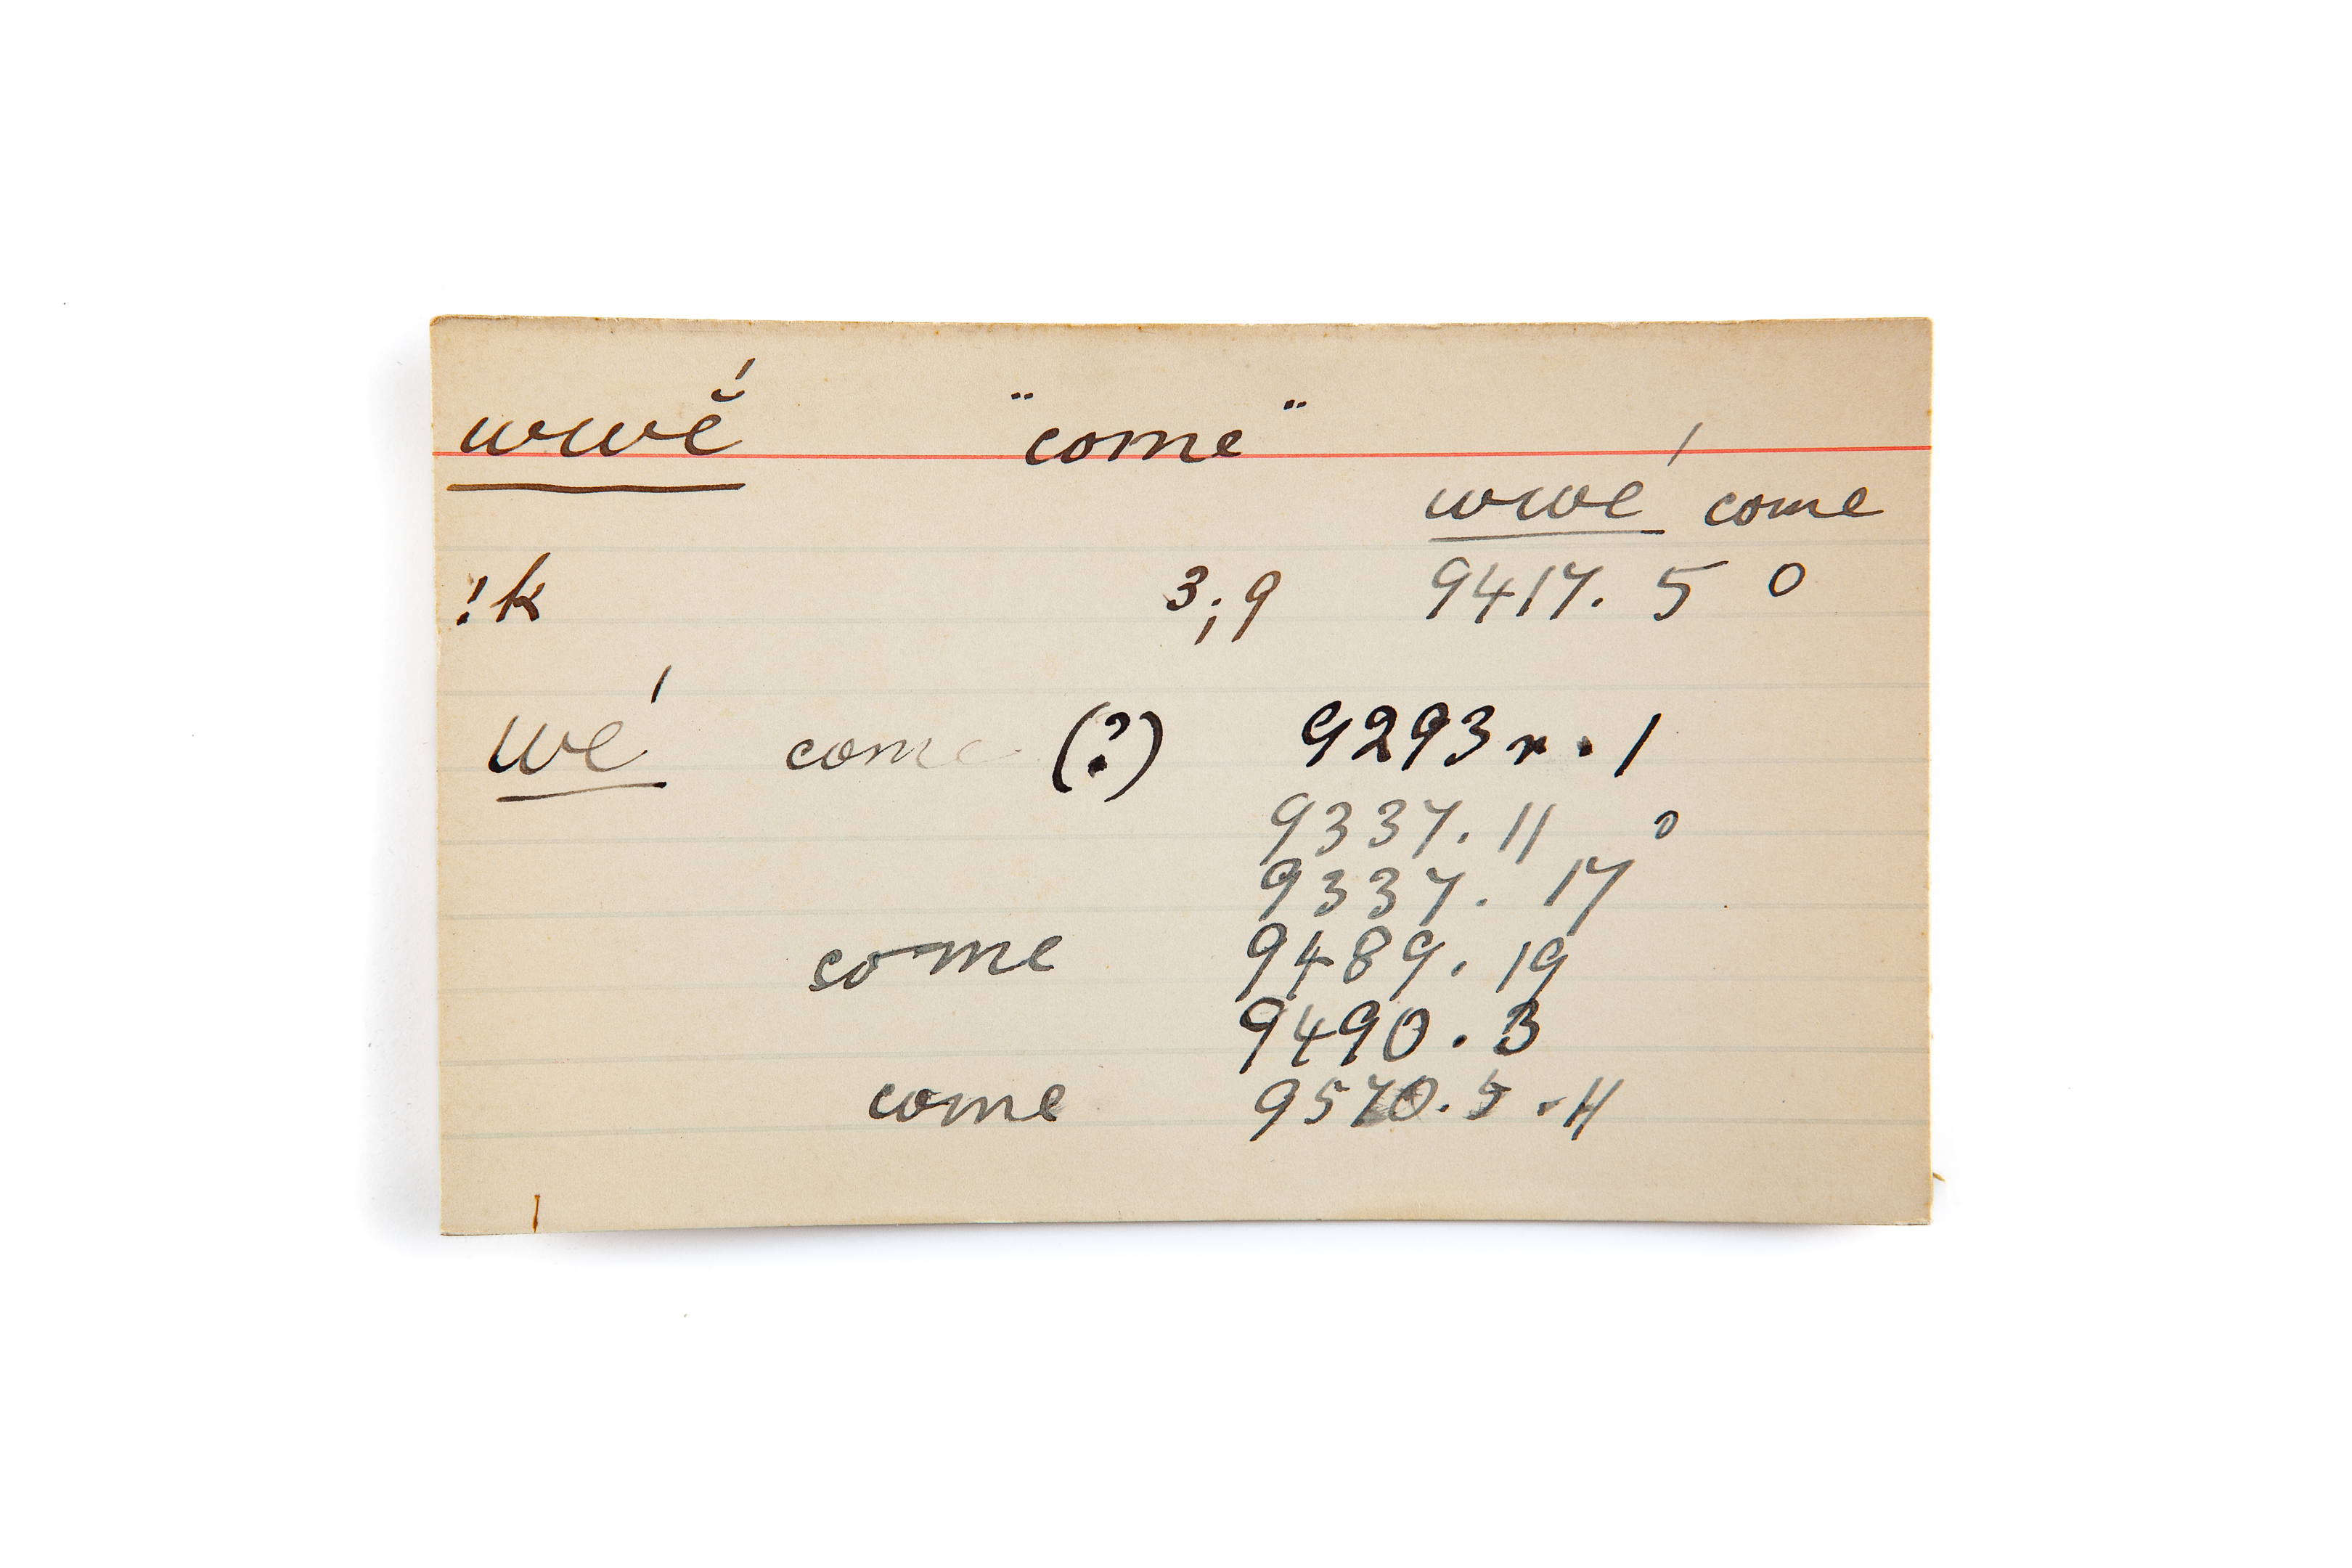 wwĕ́ "come"
wwé come
!k 3;9 9417. 5 0
wé come (?) 9293r. 1
9337. 11 0
9337. 17
come 9489. 19
9490. 3
come 9570. 5 . 11